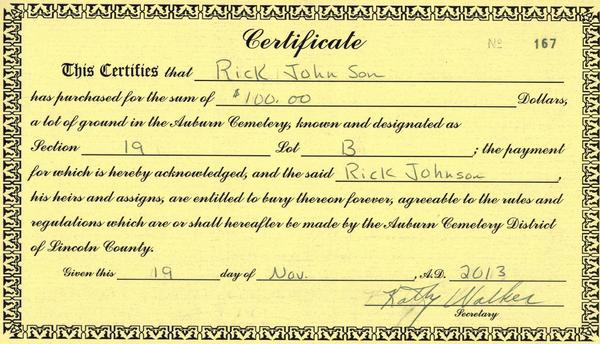 Certificate
No 167
This Certifies that Rick Johnson
has purchased for the sum of $100.00 Dollars,
a lot of ground in the Auburn Cemetery, known and designated as
Section 19 Lot B ; the payment
for which is hereby acknowledged, and the said Rick Johnson ,
his heirs and assigns, are entitled to bury thereon forever, agreeable to the rules and
regulations which are or shall hereafter be made by the Auburn Cemetery District
of Lincoln County.
Given this 19 day of Nov. , A.D. 2013
Kathy Walker
Secretary